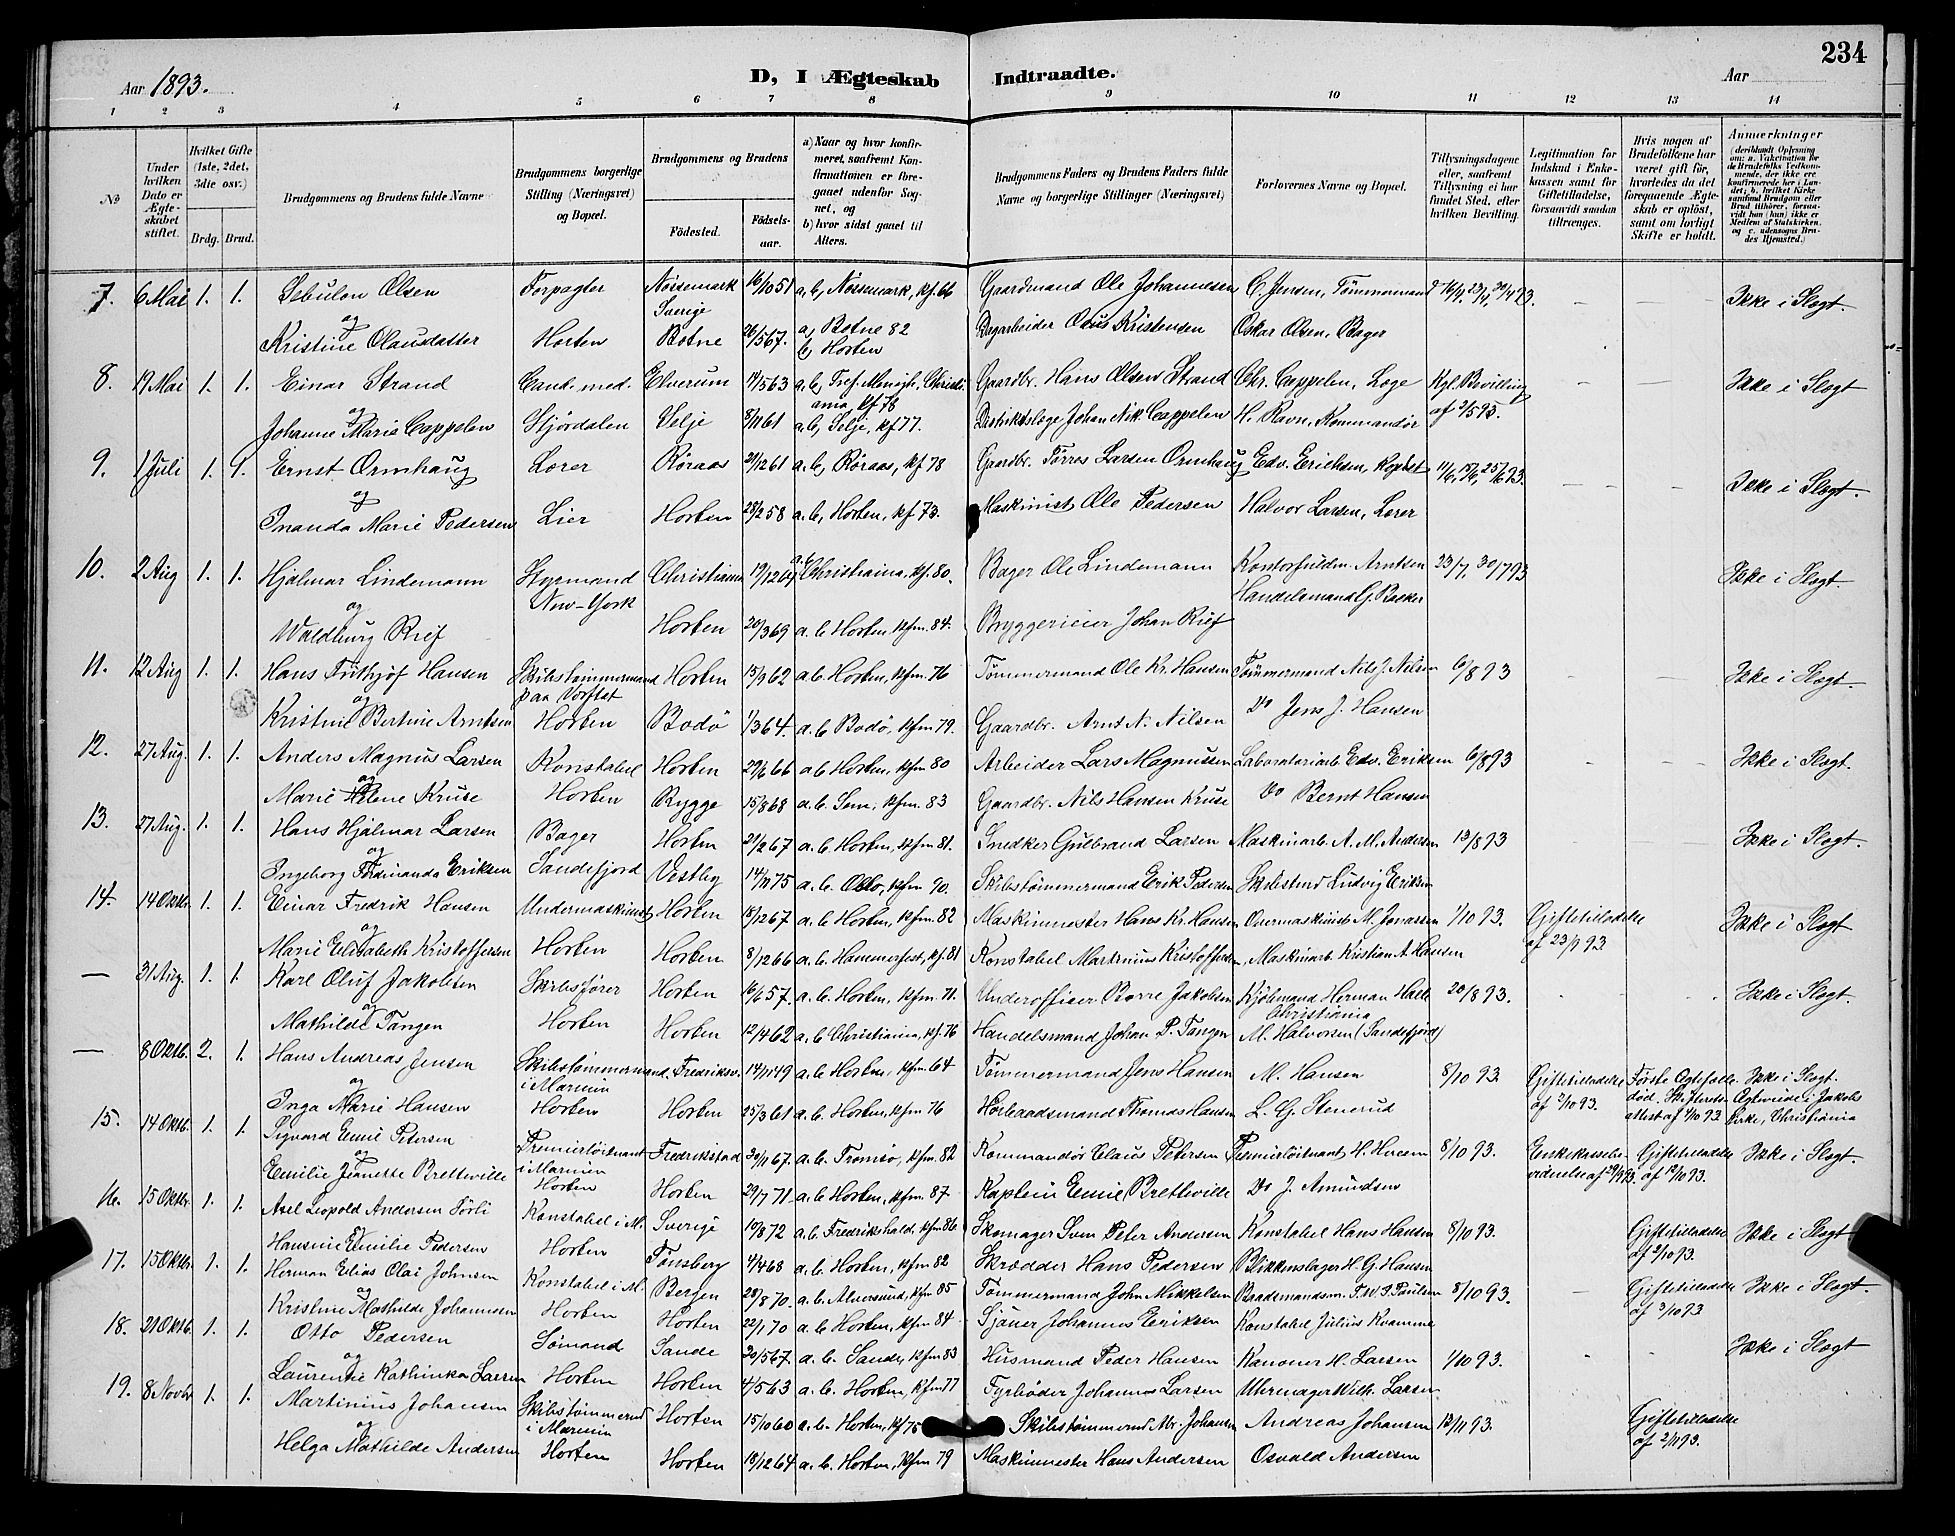 234
Aar 1893.
D, I Ægteskab Indtraadte.
Aar
1 2 3 4 5 6 7 8 9 10 11 12 13 14
No
Under hvilken Dato er Ægteskabet stiftet.
Hvilket Gifte (1ste, 2det, 3die osv.)
Brdg. Brud.
Brudgommens og Brudens fulde Navne
Brudgommens borgerlige Stilling (Næringsvei) og Bopæl.
Brudgommens og Brudens
Fødested. Fødselsaar.
a) Naar og hvor konfirmeret, saafremt Konfirmationen er foregaaet udenfor Sognet, og
b) hvor sidst gaaet til Alters.
Brudgommens Faders og Brudens Faders fulde Navne og borgerlige Stillinger (Næringsvei)
Forlovernes Navne og Bopæl.
Tillysningsdagene eller, saafremt Tillysning ei har fundet Sted, efter hvilken Bevilling.
Legitimation for Indskud i Enkekassen samt for Giftetilladelse, forsaavidt saadan tiltrænges.
Hvis nogen af Brudefolkene har været gift før, hvorledes da det foregaaende Ægteskab er opløst, samt om lovligt Skifte er holdt.
Anmerkninger (deriblandt Oplysning om: a. Vakcination for de Brudefolks Vedkommende, der ikke ere konfirmerede her i Landet; b. hvilket Kirkesamfund Brudgom eller Brud tilhører, forsaavidt han (hun) ikke er Medlem af Statskirken, og c. udensogns Brudes Hjemsted.)
7. 6 Mai 1. 1. Sebulon Olsen Forpagter Nøssemark Sverige 16/10 51 a, b, Nøssemark, kf. 66 Gaardmand Ole Johannesen C. Jensen, Tømmermand 16/4, 23/4, 30/4 93. — — Ikke i Slegt.
og Kristine Olausdatter Horten Botne 26/5 67. a) Botne 82 b) Horten Oskar Olsen, Bager
8. 19 Mai 1. 1. Einar Strand Cand. med. Elverum 11/5 63 a. b, Tref. Menigh., Christiania kf 78 Gaardbr. Hans Olsen Strand Chr. Cappelen, Læge Kgl. Bevilling af 2/5 93. — — Ikke i Slegt
og Johanne Marie Cappelen Stjördalen Selje 8/11 61 a. b, Selje, kf 77. Distriktslæge Johan Nik. Cappelen H. Ravn, Kommandør
9. 1 Juli 1. 1. Ernst Ormhaug Lærer Røraas 21/12 61 a. b, Røraas, kf 78 Gaardbr. Tørres Larsen Ormhaug Edv. Erichsen, 11/6, 18/6, 25/6 93. — — Ikke i Slegt.
og Inanda Marie Pedersen Lier Horten 28/2 58 a. b, Horten, kf 73. Maskinist Ole Pedersen Halvor Larsen, Lærer
10. 2 Aug 1. 1. Hjalmar Lindemann New-York Christiania 19/12 a. b. Christiania, kf. 80. Bager Ole Lindemann Kontorfuldm. Arntsen 23/7, 30/7 93 Ikke i Slegt.
og Waldburg Rief Horten 20/3 69 a. b. Horten, kfm. 84. Bryggerieier Johan Rief Handelsmand G. Backer
11. 12 Aug 1. 1. Hans Frithjof Hansen Skibstømmermand paa Vorftet Horten 15/9 62 a. b. Horten, kfm. 76 Tømmermand Ole Kr. Hansen Tømmermand Nils J. Nilsen 6/8 93 — — Ikke i Slegt.
og Kristine Bertine Arntsen Horten Bodö 1/3 64. a. b Bodö, kfm 79. Gaardbr. Arnt N. Nilsen Do Jens J. Hansen
12. 27 Aug. 1. 1. Anders Magnus Larsen Konstabel Horten 29/6 66 a b Horten, kfm 80 Arbeider Lars Magnussen Laboratoriarb. Edv. Eriksen 6/8 93 Ikke i Slegt.
og Marie Helene Kruse Horten Rygge 15/8 68 a. b. Sem, kfm. 83 Gaardbr. Nils Hansen Kruse Do Bernt Hansen
13. 27 Aug. 1. 1. Hans Hjalmar Larsen Bager Horten 21/2 67 a. b. Horten, kfm 81. Snedker Gulbrand Larsen Maskinarb. A. M. Andersen 13/8 93 Ikke i Slegt.
og Ingeborg Ferdinanda Eriksen Sandefjord Vestby 14/11 75 a. b. Oslo, kfm 90. Skibstømmermand Erik Pedersen Skibstmd Ludvig Eriksen
14. 14 Oktbr. 1. 1. Einar Fredrik Hansen Undermaskinist Horten 18/12 67 a. b. Horten, kfm. 82 Maskinmester Hans Kr. Hansen Overmaskinist M. Jonassen 1/10 93. Giftetilladelse af 23/9 93 Ikke i Slegt
og Marie Elisabeth Kristoffersen Horten Horten 8/12 66 a. b. Hammerfest, kf. 81 Konstabel Martinius Kristoffersen Maskinarb. Kristian A. Hansen
— 31 Aug. 1. 1. Karl Oluf Jakobsen Skibsfører Horten 16/6 57 a. b. Horten, kfm. 71. Underofficer Borre Jakobsen Kjøbmand Herman Halle Christiania 20/8 93. Ikke i Slegt.
og Mathilde Tangen Horten Horten 12/4 62 a. b Christiania, kf. 76 Handelsmand Johan P. Tangen M. Halvorsen (Sandefjord)
— 8 Oktb. 2. 1. Hans Andreas Jensen Skibstømmermand i Marinen Fredriksv. 14/11 49 a. b Horten, kfm. 64 Tømmermand Jens Hansen M. Hansen 8/10 93. Giftetilladelse af 2/10 93. Første Ægtefælle død. Skifteretsattest af 7/10 93 Ikke i Slegt. Ægteviede i Jakobs Kirke, Christiania
og Inga Marie Hansen Horten Horten 25/3 61 a. b. Horten, kfm 76 Thomas Hansen L. G. Stenerud
15. 14 Oktb. 1. 1. Sigvard Emil Petersen Premierløitnant i Marinen Fredrikstad 30/11 67. a. b. Tromsö, kfm. 82 Kommandör Claus Petersen Premierløitnant H. 8/10 93. Enkekassebevidnelse af 29/9 93. Giftetilladelse af 12/10 93. Ikke i Slegt.
og Emilie Jeanette Bretteville Horten Horten 29/7 71 a. b. Horten, kfm. 87. Kaptein Emil Bretteville Do J. Amundsen
16. 15 Oktbr. 1. 1. Axel Leopold Andersen Törli Konstabel i M. Sverige 10/8 72 a. b. Fredrikshald, kfm 86 Skomager Sven Peter Andersen Konstabel Hans Hansen 8/10 93. Giftetilladelse af 2/10 93. Ikke i Slegt
og Hansine Emilie Pedersen Horten Tønsberg 4/4 68 a. b. Horten, kfm 82 Skrædder Hans Pedersen Blikkenslager H. G. Hansen
17. 15 Oktbr. 1. 1. Herman Elias Olai Johnsen Konstabel i M. Bergen 28/8 70. a. b. Alversund, kfm 85 Tømmermand John Mikkelsen Baadsmandsm. T. W. P. Paulsen 8/10 93. — Giftetilladelse af 3/10 93 Ikke i Slegt.
og Kristine Mathilde Johannesen Horten Horten 22/1 70 a. b. Horten, kfm 84 Sjøuer Johannes Eriksen Konstabel Julius Kvamme
18. 21 Oktb. 1. 1. Otto Pedersen Sømand Sande 20/5 67. a. b. Sande, kfm 83 Husmand Peder Hansen Kanoner H. Larsen 1/10 93. Ikke i Slegt
og Laurentze Kathinka Larsen Horten Horten 4/5 63 a. b. Horten, kfm 77 Fyrbøder Johannes Larsen Uhrmager Wilh. Larsen
19. 8 Novbr 1. 1. Martinius Johansen Skibstømmermd i Marinen Horten 15/10 60 a. b. Horten, kf 75 Skibstømmermd Mr. Johansen Andreas Johansen 12/11 93. Giftetilladelse af 2/11 93.
og Helga Mathilde Andersen Horten Horten 18/12 64 a. b. Horten, kfm 79 Maskinmester Hans Andersen Osvald Andersen